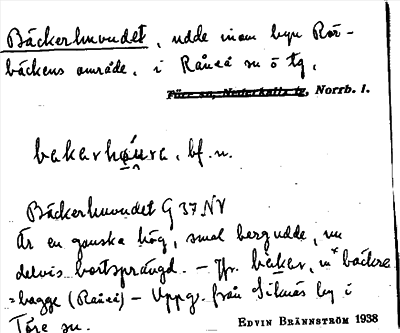 Bäckerhuvudet, udde inom byn Rör-
bäckens område, i Råneå sn ö tg,
Töre sn, Nederkalix tg, Norrb. l.
bakarhɷura, bf. n.
Bäckerhuvudet G 37 NV
Är en ganska hög, smal bergudde, nu
delvis bortsprängd. — Jfr. bäkar, m
=bagge (Råneå) — Uppg. från Siknäs by i
Töre sn.
EDVIN BRÄNNSTRÖM 1938